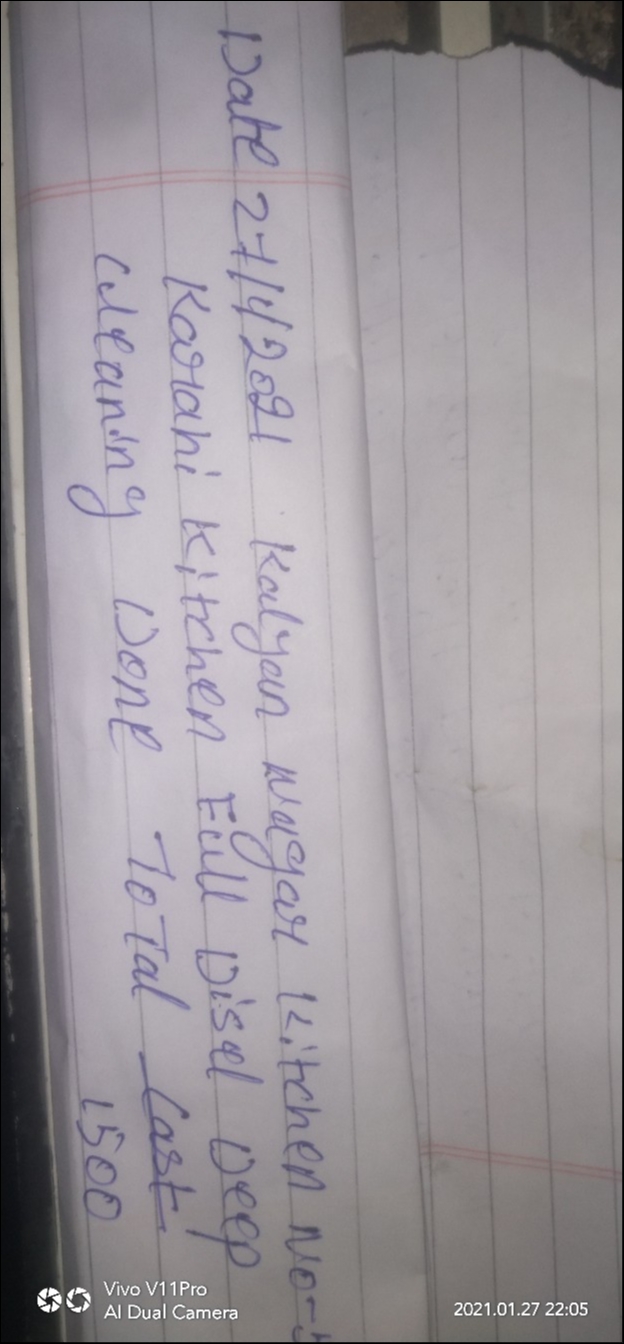 Date 27/1/2021 Kalyan Nagar Kitchen No-
Karahi Kitchen Full Disel Deep
cleaning Done Total Cast
1500
Vivo V11Pro
AI Dual Camera
2021.01.27 22:05